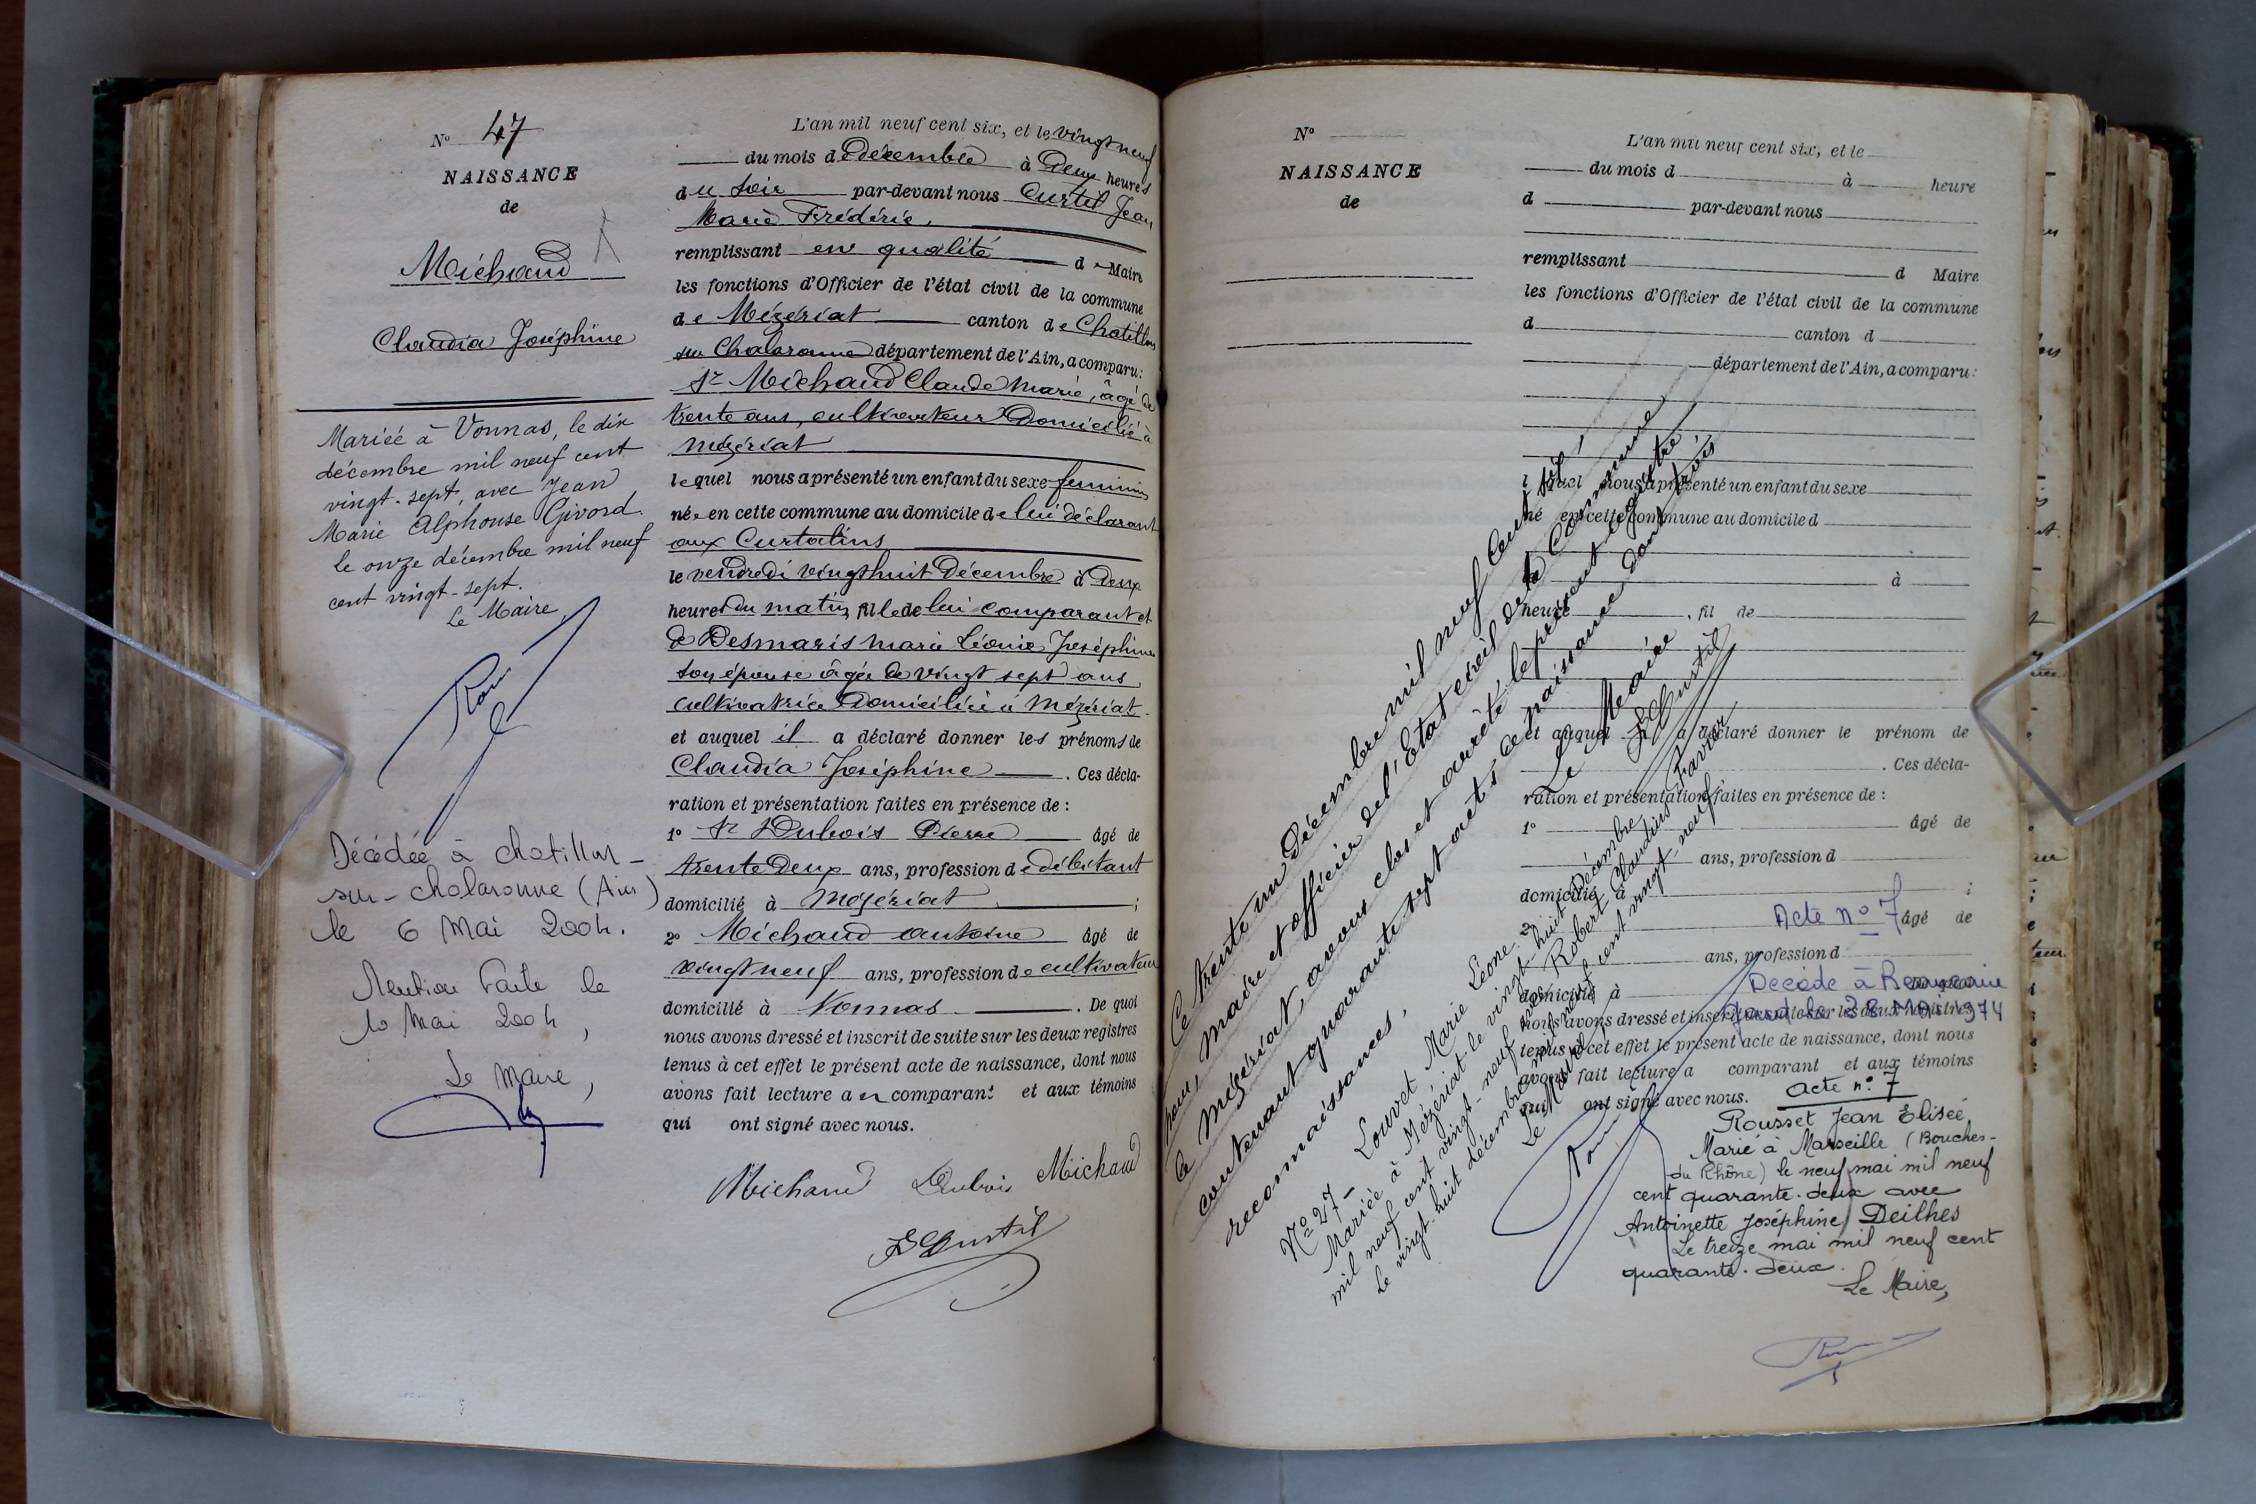 N° 47
NAISSANCE
de
Michaud
Claudia Joséphine
Mariée à Vonnas, le dix
décembre mil neuf cent
vingt-sept, avec Jean
Marie Alphonse Givord.
le onze décembre mil neuf
cent vingt-sept.
Le Maire,
Décédée à Chatillon-
sur-Chalaronne (Ain)
le 6 Mai 2004.
Mention faite le
10 Mai 2004,
Le Maire,
L'an mil neuf cent six, et le vingt neuf
du mois de Décembre à Deux heures
du soir par-devant nous Curtil Jean
Marie Frédéric,
remplissant en qualité de Maire
les fonctions d'Officier de l'état civil de la commune
de Mézériat canton de Chatillon
sur Chalaronne département de l'Ain, a comparu:
Sr Michaud Claude Marie, âgé de
trente ans, cultivateur Domicilié à
Mézériat
lequel nous a présenté un enfant du sexe feminin
née en cette commune au domicile de lui déclarant
aux Curtatins
le vendredi vingt huit Décembre à Deux
heures du matin, fille de lui comparant et
de Desmaris Marie Léonie Joséphine
son épouse âgée de vingt sept ans
cultivatrice Domiciliée à Mézériat
et auquel il a déclaré donner les prénoms de
Claudia Joséphine. Ces décla-
ration et présentation faites en présence de :
1° Sr Dubois Pierre âgé de
trente Deux ans, profession de débitant
domicilié à Mézériat ;
2° Michaud Antoine âgé de
vingt neuf ans, profession de cultivateur
domicilié à Vonnas. De quoi
nous avons dressé et inscrit de suite sur les deux registres
tenus à cet effet le présent acte de naissance, dont nous
avons fait lecture au comparant et aux témoins
qui ont signé avec nous.
Michaud Dubois Michaud
Curtil
N°
NAISSANCE
de
L'an mil neuf cent six, et le
du mois d à heure
d par-devant nous
remplissant d Maire
les fonctions d'Officier de l'état civil de la commune
d canton d
département de l'Ain, a comparu:
l quel nous a présenté un enfant du sexe
né en cette commune au domicile d
à
heure , fil de
et auquel a déclaré donner le prénom de
. Ces décla-
ration et présentation faites en présence de :
1° âgé de
ans, profession d
domicilié à ;
2° âgé de
ans, profession d
domicilié à
nous avons dressé et inscrit de suite sur les deux registres
tenus à cet effet le présent acte de naissance, dont nous
avons fait lecture a comparant et aux témoins
qui ont signé avec nous.
Ce trente un Décembre mil neuf cent six,
nous, Maire et officier de l'Etat civil de la Commune
de Mézériat, avons clos et arrêté le présent registre,
contenant quarante sept actes de naissance dont trois
reconnaissances.
Le Maire
Curtil
N° 27 - Louvet Marie Léone
Mariée à Mézériat le vingt-huit Décembre
mil neuf cent vingt-neuf avec Robert Claudius Favier
le vingt-huit décembre mil neuf cent vingt-neuf
Le Maire
Acte n° 7
Décédé à Beaucaire
Gard le 28 Mai 1974
Acte n° 7
Rousset Jean Élisée,
Marié à Marseille (Bouches-
du Rhône) le neuf mai mil neuf
cent quarante-deux avec
Antoinette Joséphine Deilhes
Le treize mai mil neuf cent
quarante-deux.
Le Maire,